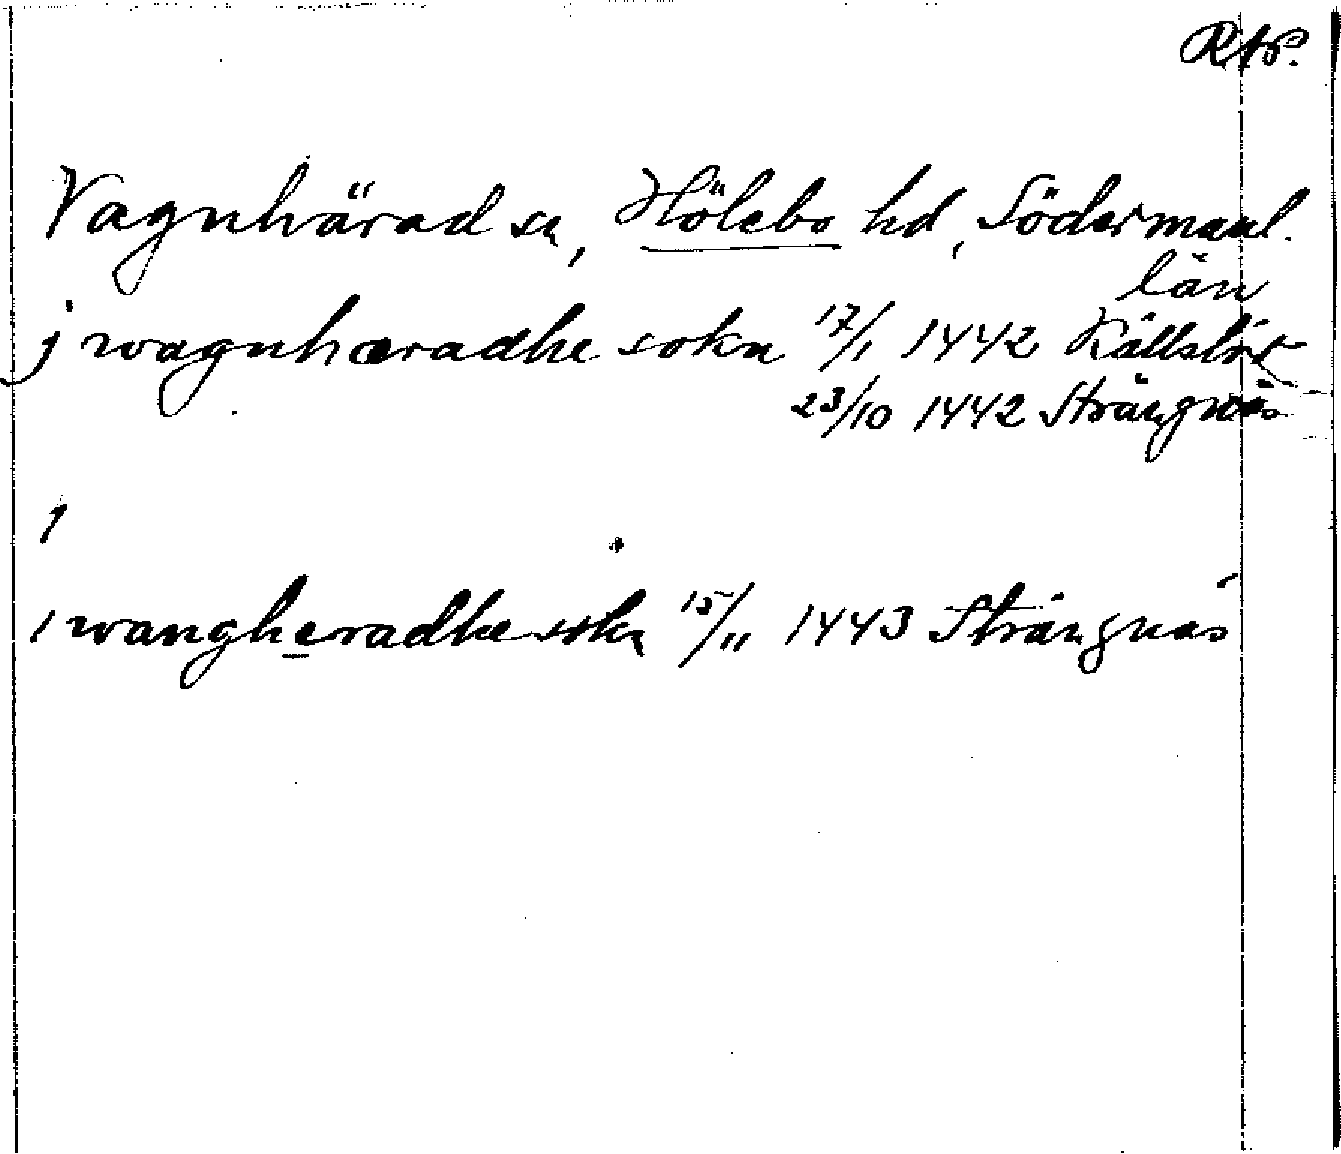 RAP.
Vagnhärad sn, Hölebo hd, Södermanl.
län
j wagnhæradhe sokn 17/1 1442
23/10 1442 Strängnäs
i wangheradhe sokn 15/11 1443 Strängnäs